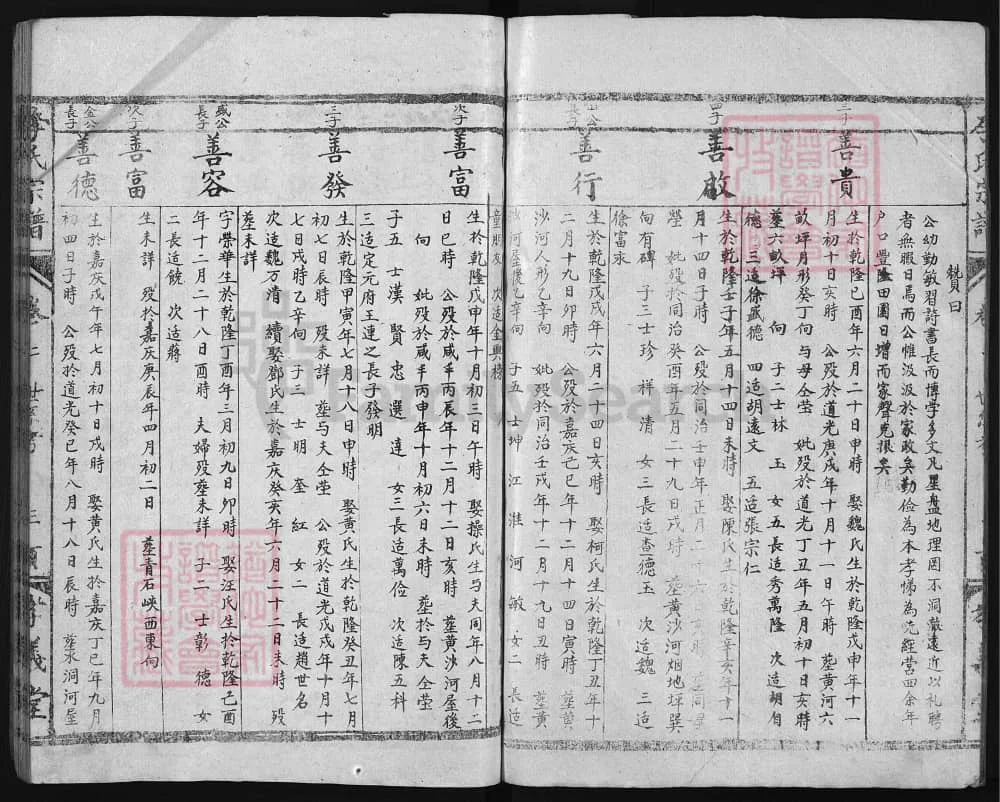 贊曰
公幼勤敏習詩書長而博學多文凡星盤地理罔不洞徹遠近以禮聘
者無暇日焉而公惟汲汲於家政矣勤儉為本孝悌為先經營四余年
戶口豐隆田園日增而家聲克振矣
三子
善貴
生於乾隆己酉年六月二十日申時 娶魏氏生於乾隆戊申年十一
月初十日亥時 公殁於道光庚戌年十月十一日午時 塟黃河六
畝坪月形癸丁向 与母仝塋 妣殁於道光丁丑年五月初十日亥時
塟六畝坪 向 子二士林 玉 女五長造秀萬隆 次造胡自
德 三造徐盛德 四造胡遠文 五造張宗仁
四子
善啟
生於乾隆壬子年五月十四日未時 娶陳氏生於乾隆辛亥年十一
月十四日子時 公殁於同治壬申年正月二十六亥時
塋 妣殁於同治癸酉年五月二十九日戌時 塟黃沙河烟地坪巽
向有碑 子三士珍 祥 清 女三長造查德玉 次造魏 三造
徐富永
善行
生於乾隆戊戌年六月二十四日亥時 娶柯氏生於乾隆丁丑年十
二月十九日卯時 公殁於嘉庆己巳年十二月十四日寅時 塟黃
沙河人形乙辛向 妣殁於同治壬戌年十二月十九日丑時 塟黃
沙河屋後乙辛向 子五士坤 江 淮 河 敏 女二 長造
童朋友 次造金興榜
次子
善富
生於乾隆戊申年十月初三日午時 娶操氏生与夫同年八月十二
日巳時 公殁於咸丰丙辰年十二月十二日亥時 塟黃沙河屋後
向 妣殁於咸丰丙申年十月初六日未時 塟於与夫仝塋
子五 士漢 賢 忠 選 達 女三長造萬儉 次造陳五科
三造定元府王連之長子發明
三子
善發
生於乾隆甲寅年七月十八日申時 娶黃氏生於乾隆癸丑年七月
初七日辰時 殁未詳 塟与夫仝塋 公殁於道光戊戌年十月十
七日戌時乙辛向 子三 士明 奎 紅 女二 長造趙世名
次造魏万清 續娶鄧氏生於嘉庆癸亥年六月二十二日未時 殁
塟未詳
盛公長子
善容
字榮華生於乾隆丁酉年三月初九日卯時 娶汪氏生於乾隆己酉
年十二月二十八日酉時 夫婦殁塟未詳 子二士彰 德 女
二長造饒 次造蔣
次子
善富
生未詳 殁於嘉庆庚辰年四月初二日 塟青石峽西東向
金公長子
善德
生於嘉庆戊午年七月初十日戌時 娶黃氏生於嘉庆丁巳年九月
初四日子時 公殁於道光癸巳年八月十八日辰時 塟水洞河屋
宗譜
卷二
世系考
義堂